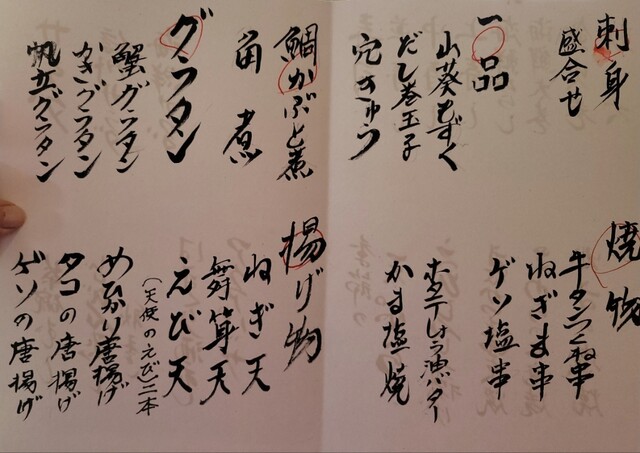 刺身
盛合せ
一品
山葵もずく
だし巻玉子
穴きゅう
焼物
牛タンつくね串
ねぎま串
ゲソ塩串
かま塩焼
鯛かぶと煮
角煮
グラタン
蟹グラタン
かきグラタン
帆立グラタン
揚げ物
ねぎ天
舞茸天
えび天
（天使のえび）三本
めひかり唐揚げ
タコの唐揚げ
ゲソの唐揚げ